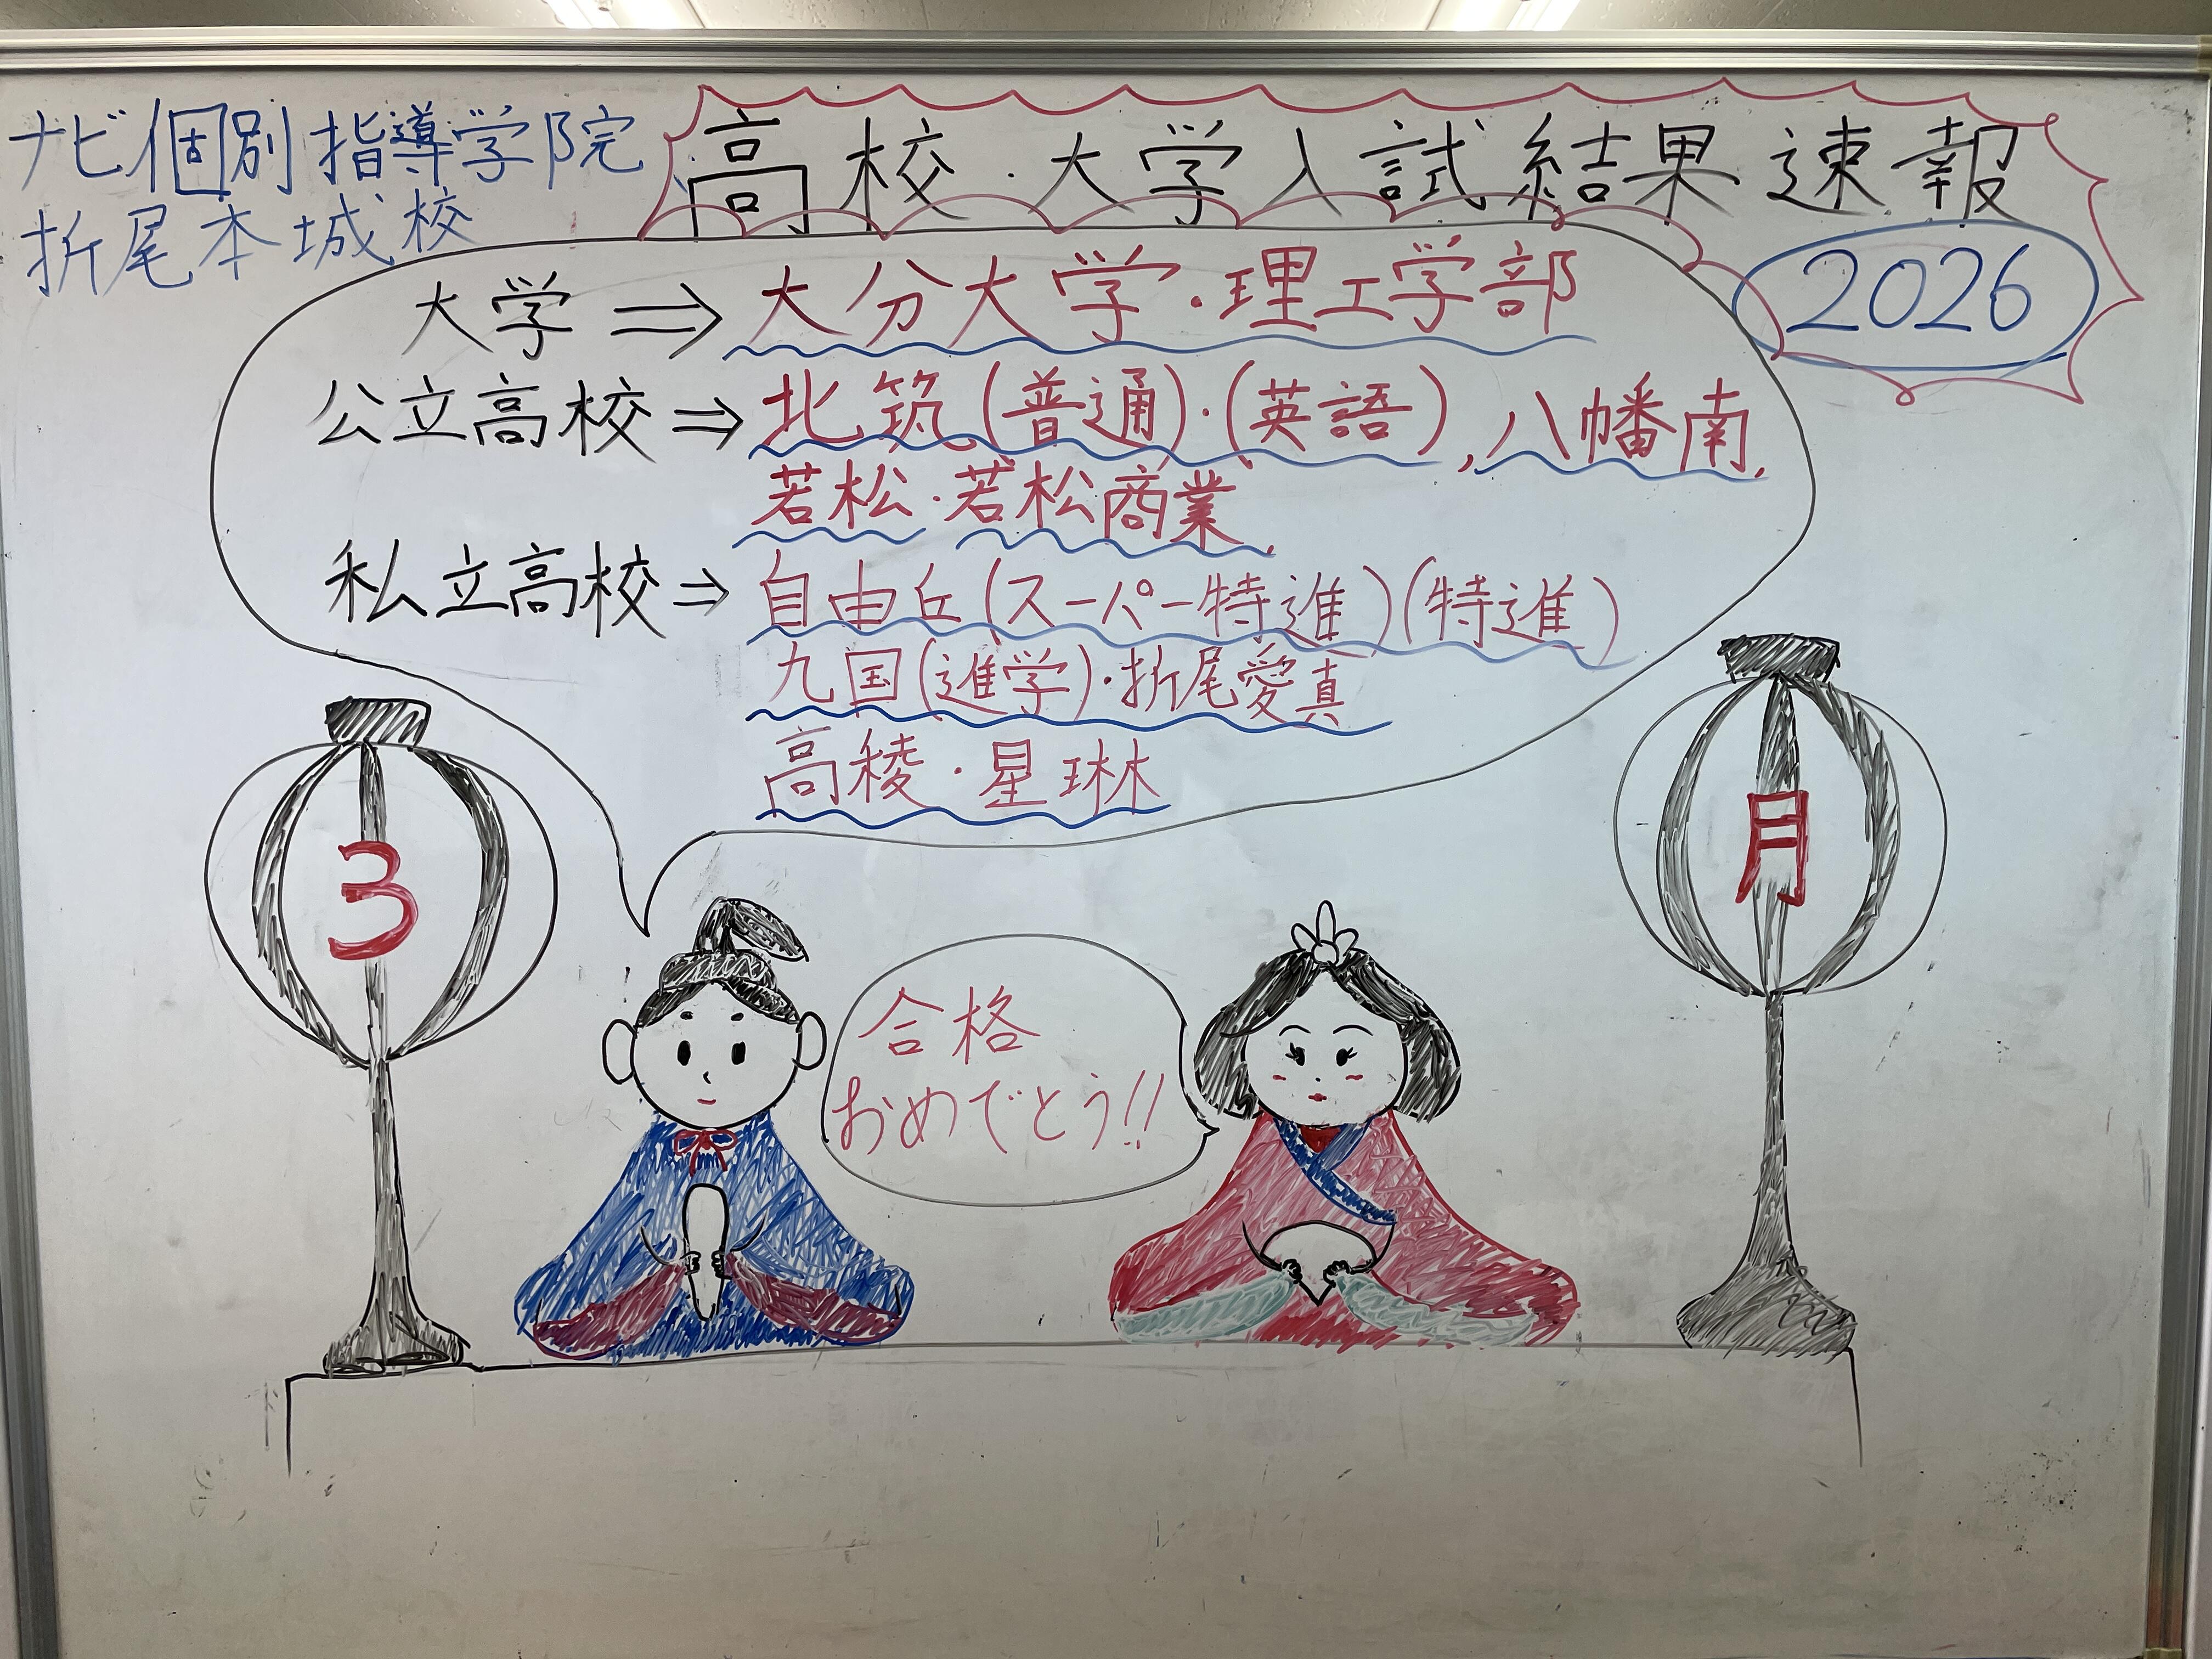 ナビ個別指導学院
折尾本城校
高校・大学入試結果速報
2026
大学⇒大分大学・理工学部
公立高校⇒北筑(普通)・(英語),八幡南,
若松・若松商業,
私立高校⇒自由丘(スーパー特進)(特進)
九国(進学)・折尾愛真
高稜・星琳
3
月
合格
おめでとう!!